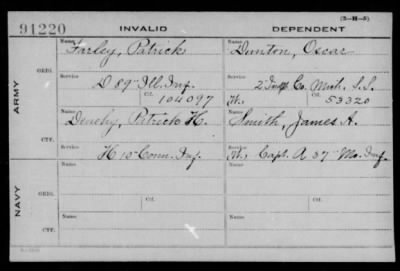 (3-H-5)
91220 INVALID DEPENDENT
Name Name
Farley, Patrick Dunton, Oscar
ORIG. Service Ctf. Service Ctf.
D 89" Ill. Inf. 2" Indpt Co. Mich. S.S.
104097 W. 53320
ARMY
Name Name
Denehy, Patrick H. Smith, James A.
CTF. Service Service
H 10" Conn. Inf. W. Capt. A 37" Mo. Inf.
NAVY
Name Name
ORIG. Service Ctf. Service Ctf.
Name Name
CTF. Service Service